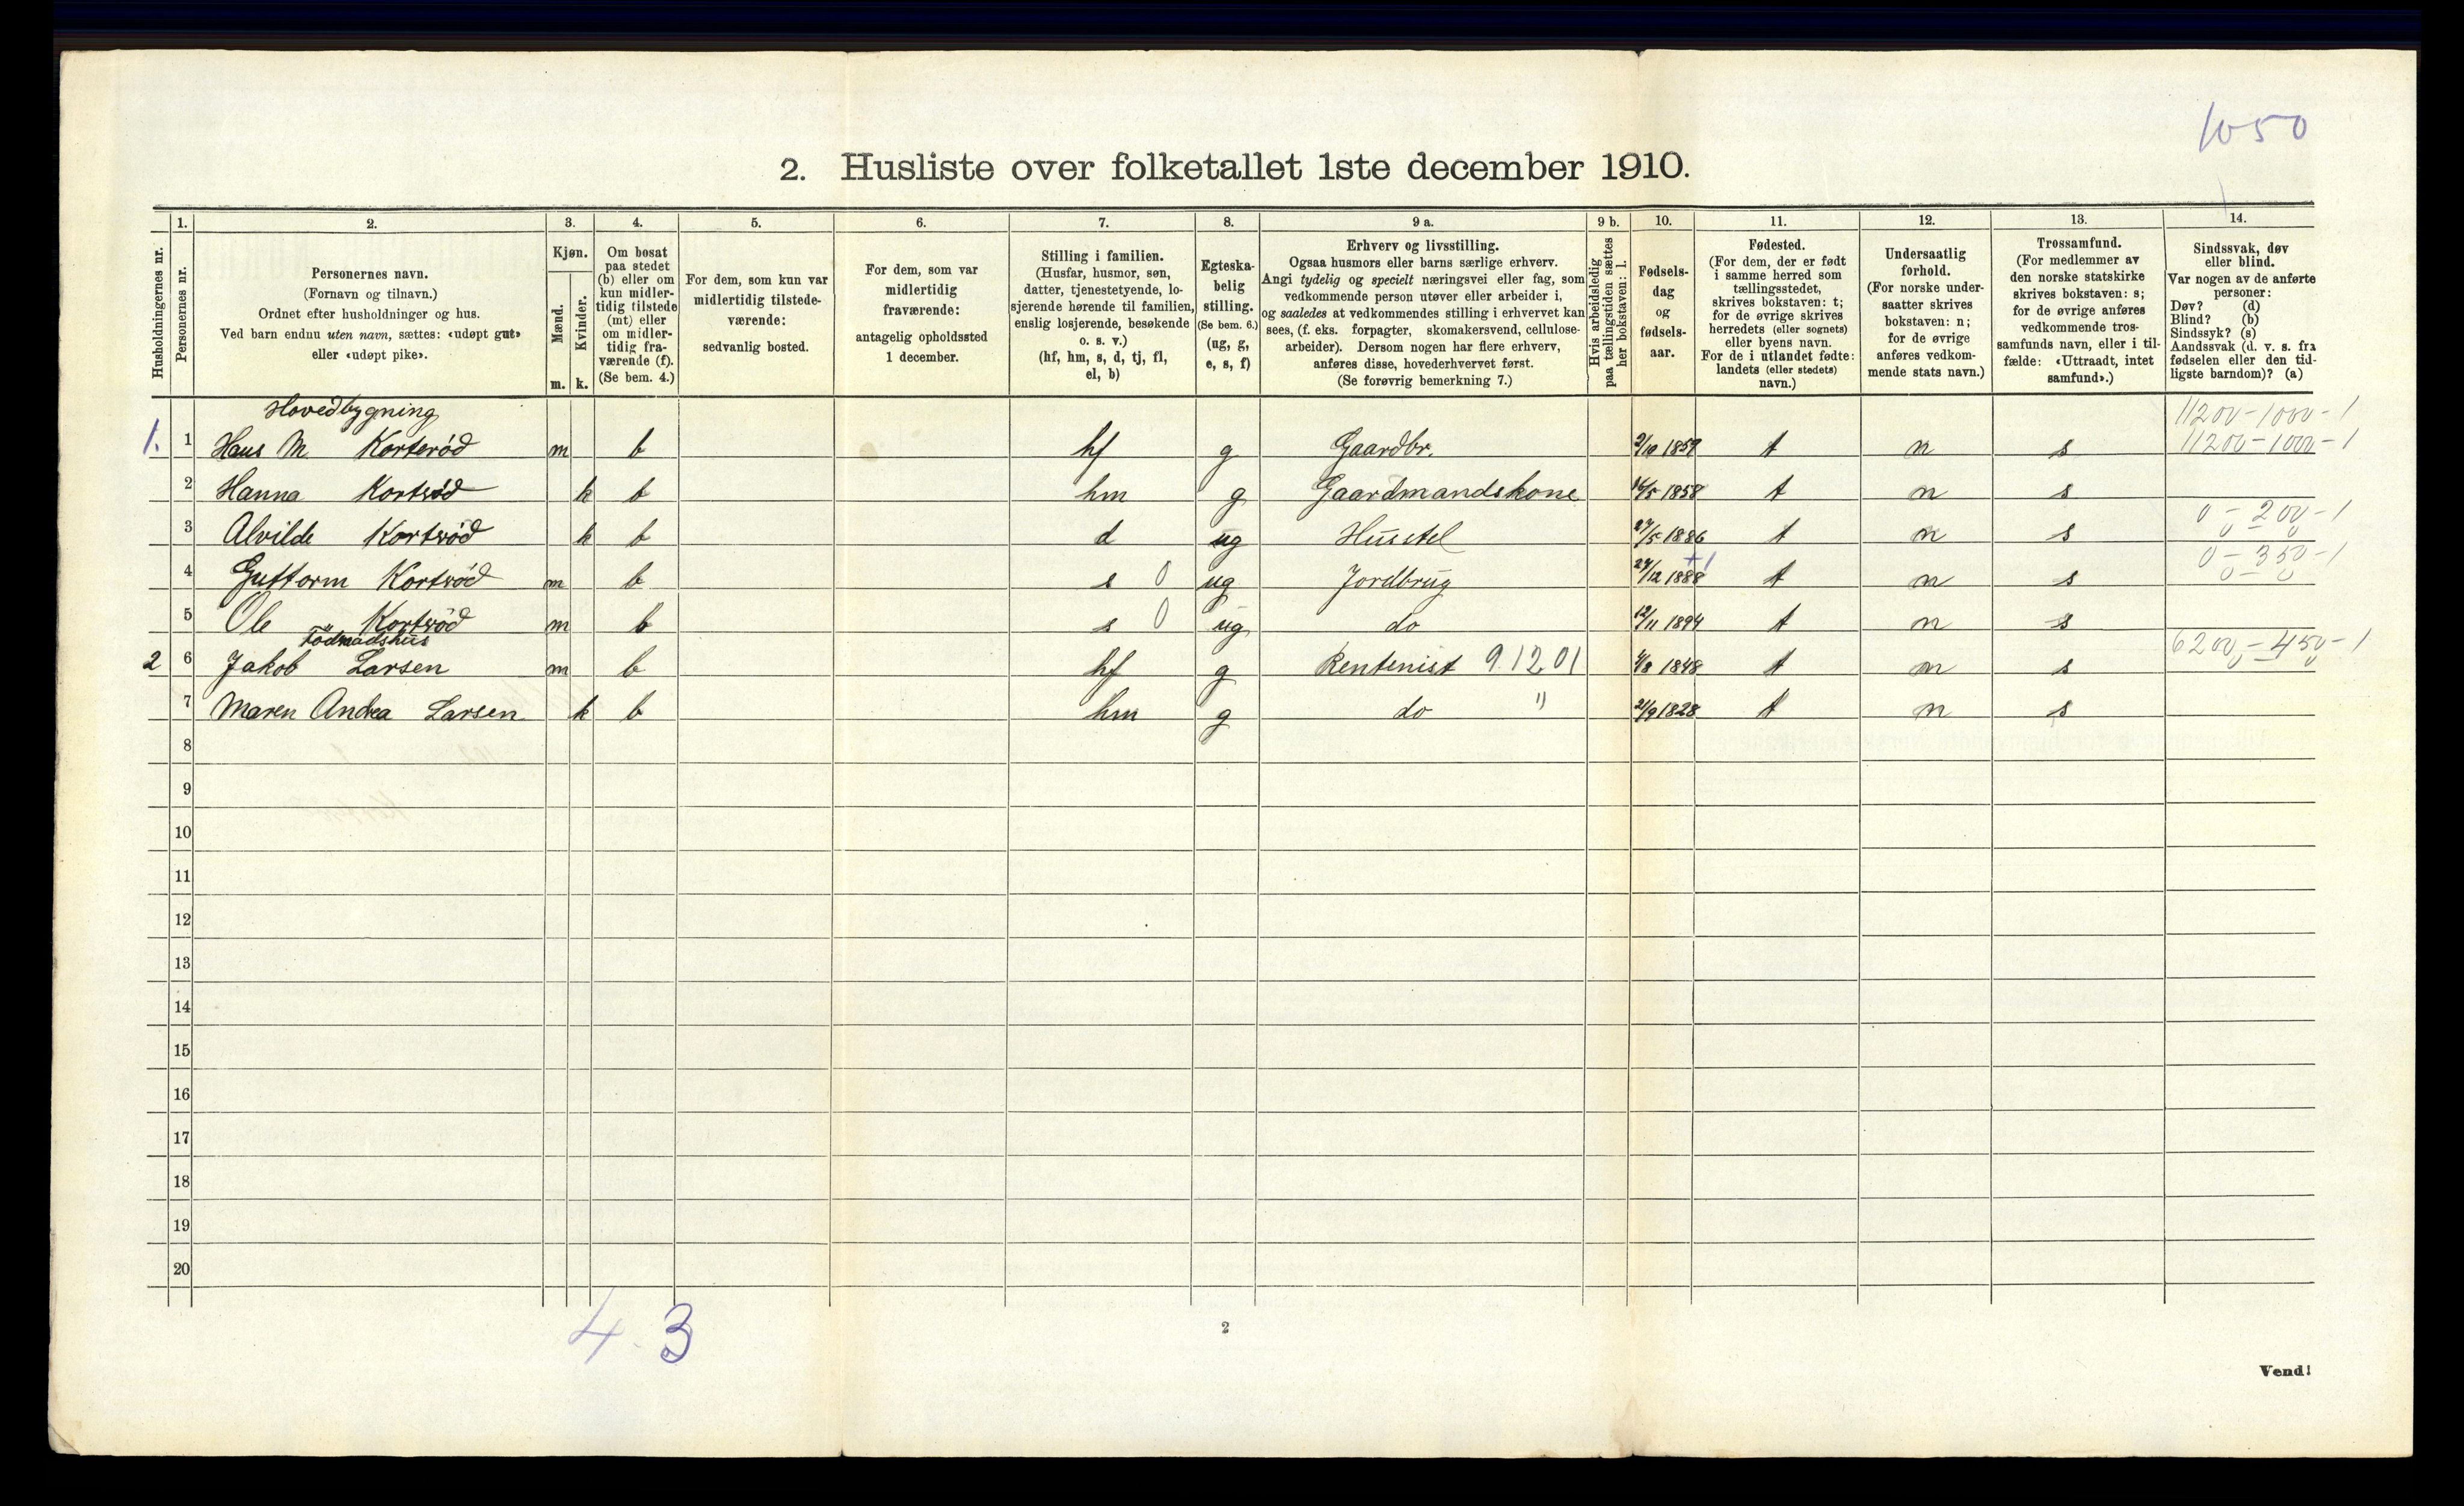 1050
2. Husliste over folketallet 1ste december 1910.
1. 2. 3. 4. 5. 6. 7. 8. 9 a. 9 b. 10. 11. 12. 13. 14.
Husholdningernes nr.
Personernes nr.
Personernes navn.
(Fornavn og tilnavn.)
Ordnet efter husholdninger og hus.
Ved barn endnu uten navn, sættes: «udøpt gut»
eller «udøpt pike».
Kjøn.
Mænd.
Kvinder.
m. k.
Om bosat
paa stedet
(b) eller om
kun midler-
tidig tilstede
(mt) eller
om midler-
tidig fra-
værende (f).
(Se bem. 4.)
For dem, som kun var
midlertidig tilstede-
værende:
sedvanlig bosted.
For dem, som var
midlertidig
fraværende:
antagelig opholdssted
1 december.
Stilling i familien.
(Husfar, husmor, søn,
datter, tjenestetyende, lo-
sjerende hørende til familien,
enslig losjerende, besøkende
o. s. v.)
(hf, hm, s, d, tj, fl,
el, b)
Egteska-
belig
stilling.
(Se bem. 6.)
(ug, g,
e, s, f)
Erhverv og livsstilling.
Ogsaa husmors eller barns særlige erhverv.
Angi tydelig og specielt næringsvei eller fag, som
vedkommende person utøver eller arbeider i,
og saaledes at vedkommendes stilling i erhvervet kan
sees, (f. eks. forpagter, skomakersvend, cellulose-
arbeider). Dersom nogen har flere erhverv,
anføres disse, hovederhvervet først.
(Se forøvrig bemerkning 7.)
Hvis arbeidsledig
paa tællingstiden sættes
her bokstaven: l.
Fødsels-
dag
og
fødsels-
aar.
Fødested.
(For dem, der er født
i samme herred som
tællingsstedet,
skrives bokstaven: t;
for de øvrige skrives
herredets (eller sognets)
eller byens navn.
For de i utlandet fødte:
landets (eller stedets)
navn.)
Undersaatlig
forhold.
(For norske under-
saatter skrives
bokstaven: n;
for de øvrige
anføres vedkom-
mende stats navn.)
Trossamfund.
(For medlemmer av
den norske statskirke
skrives bokstaven: s;
for de øvrige anføres
vedkommende tros-
samfunds navn, eller i til-
fælde: «Uttraadt, intet
samfund».)
Sindssvak, døv
eller blind.
Var nogen av de anførte
personer:
Døv? (d)
Blind? (b)
Sindssyk? (s)
Aandssvak (d. v. s. fra
fødselen eller den tid-
ligste barndom)? (a)
Hovedbygning 11200-1000-1
1. 1 Hans M Korterød m b hf g Gaardbr. 2/10 1859 t n s 11200-1000-1
2 Hanna Korterød k b hm g Gaardmandskone 16/5 1858 t n s
0-200-1
3 Alvilde Korterød k b d ug Husstel 27/5 1886 t n s 0-0
0-350-1
4 Guttorm Korterød m b s 0 ug Jordbrug 24/12 1888 t n s 0-0
5 Ole Korterød m b s 0 ug do 12/11 1894 t n s
Födraadshus 6200-450-1
2 6 Jakob Larsen m b hf g Rentenist 9.12.01 4/8 1848 t n s
7 Maren Andrea Larsen k b hm g do " 21/9 1828 t n s
8
9
10
11
12
13
14
15
16
17
18
19
20
4. 3
2
Vend!